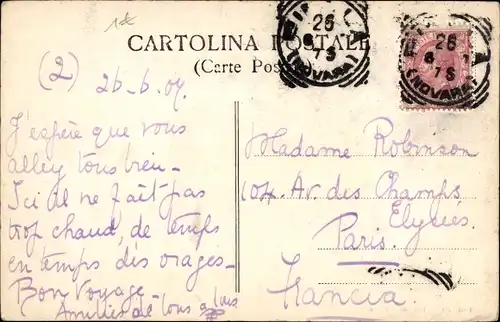 1st
CARTOLINA POSTALE
(Carte Pos
26
(NOVARA)
26
(NOVARA)
(2) 26-6.07.
J'espère que vous
allez tous bien -
Ici il ne fait pas
trop chaud, de temps
en temps des orages -
Bon Voyage -
Amitiés de tous
Madame Robinson
104 Av. des Champs
Elysées
Paris.
Francia